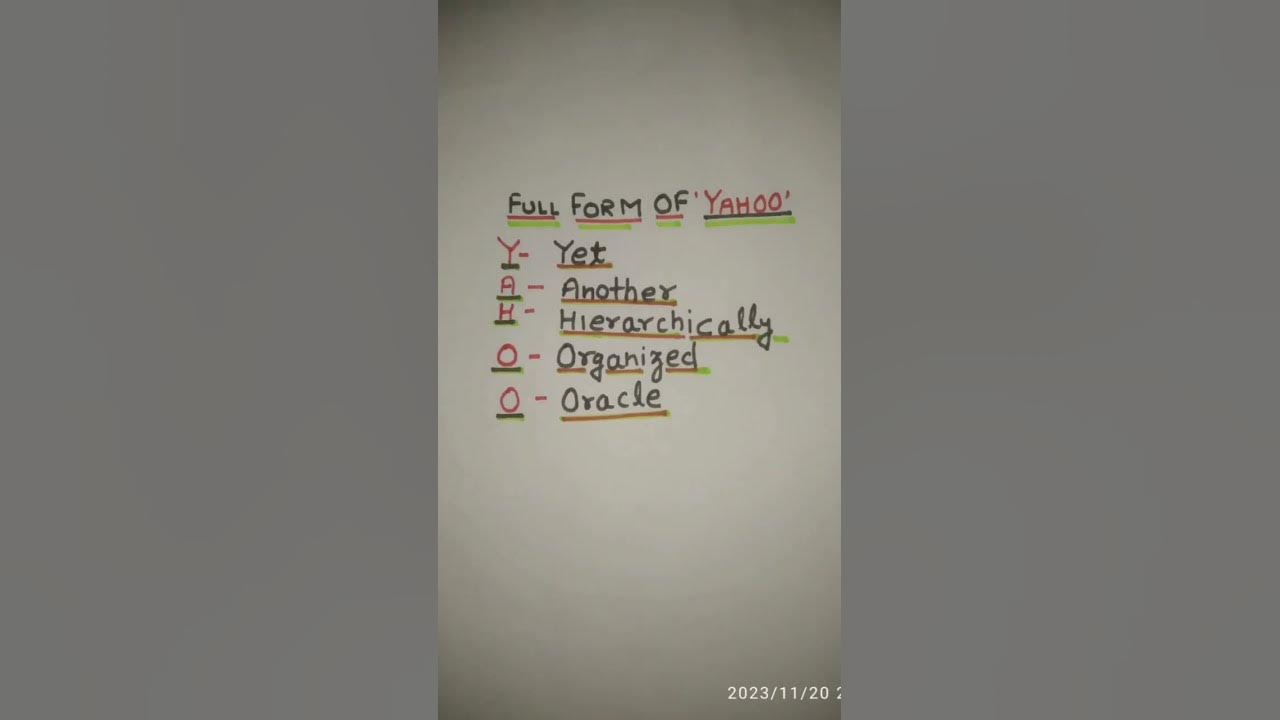 FULL FORM OF 'YAHOO'
Y- Yet
A - Another
H - HIerarchically
O - Organized
O - Oracle
2023/11/20